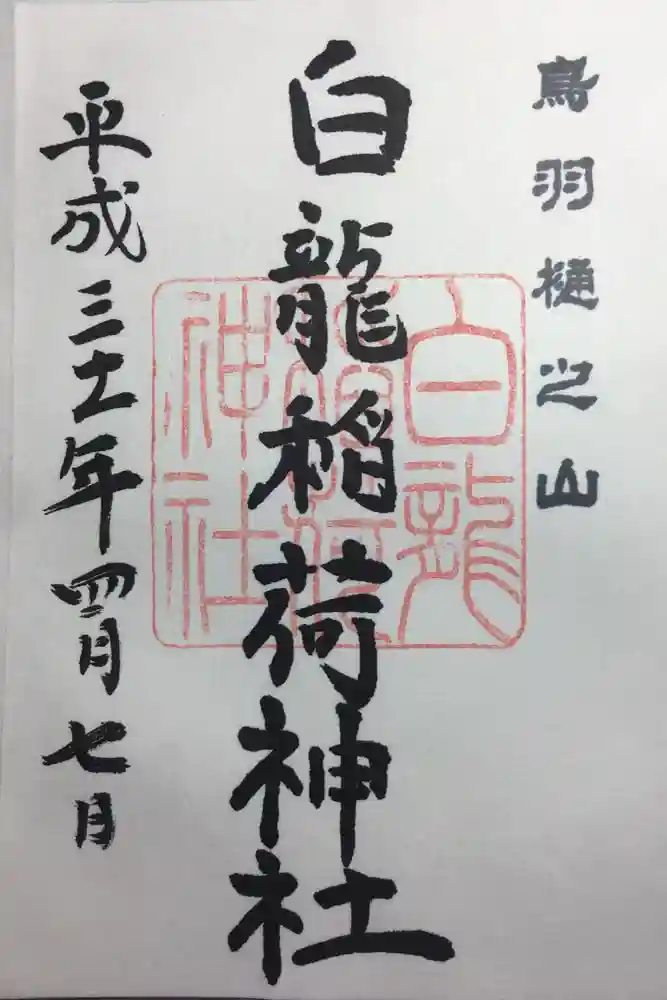 鳥羽樋之山
白龍稲荷神社
白龍
稲荷
神社
平成三十一年四月七日